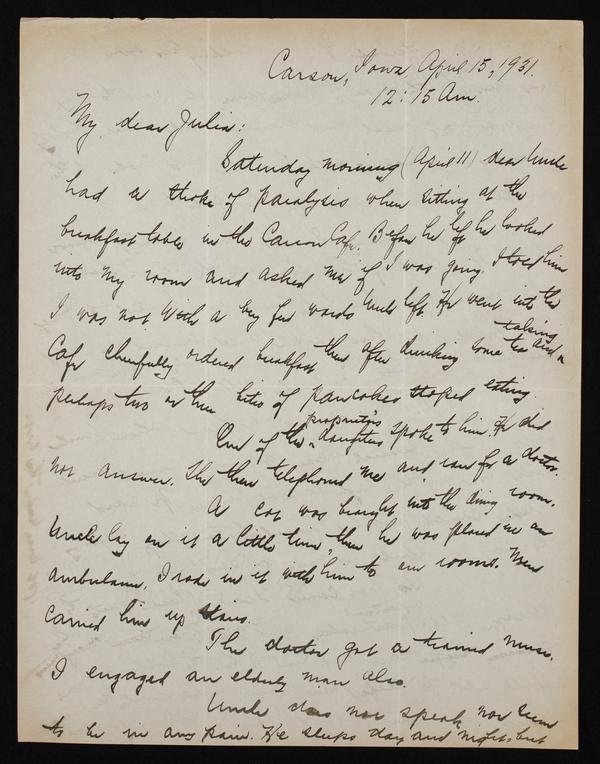 Carson, Iowa April 15, 1931.
12:15 Am.
My dear Julia:
Saturday morning (April 11) dear Uncle
had a stroke of paralysis when sitting at the
breakfast table in the Carson Cafe. Before he left he looked
into my room and asked me if I was going. I told him
I was not. With a very few words Uncle left. He went into the
Cafe cheerfully ordered breakfast then after drinking some tea and
taking
perhaps two or three bites of pancakes stoped eating.
One of the proprietor's daughters spoke to him. He did
not answer. She then telephoned me and ran for a doctor.
A cot was brought into the dining room.
Uncle lay on it a little time, then he was placed in an
ambulance, I rode in it with him to our rooms. Men
carried him up stairs.
The doctor got a trained nurse.
I engaged an elderly man also.
Uncle does not speak nor seem
to be in any pain. He sleeps day and night, but